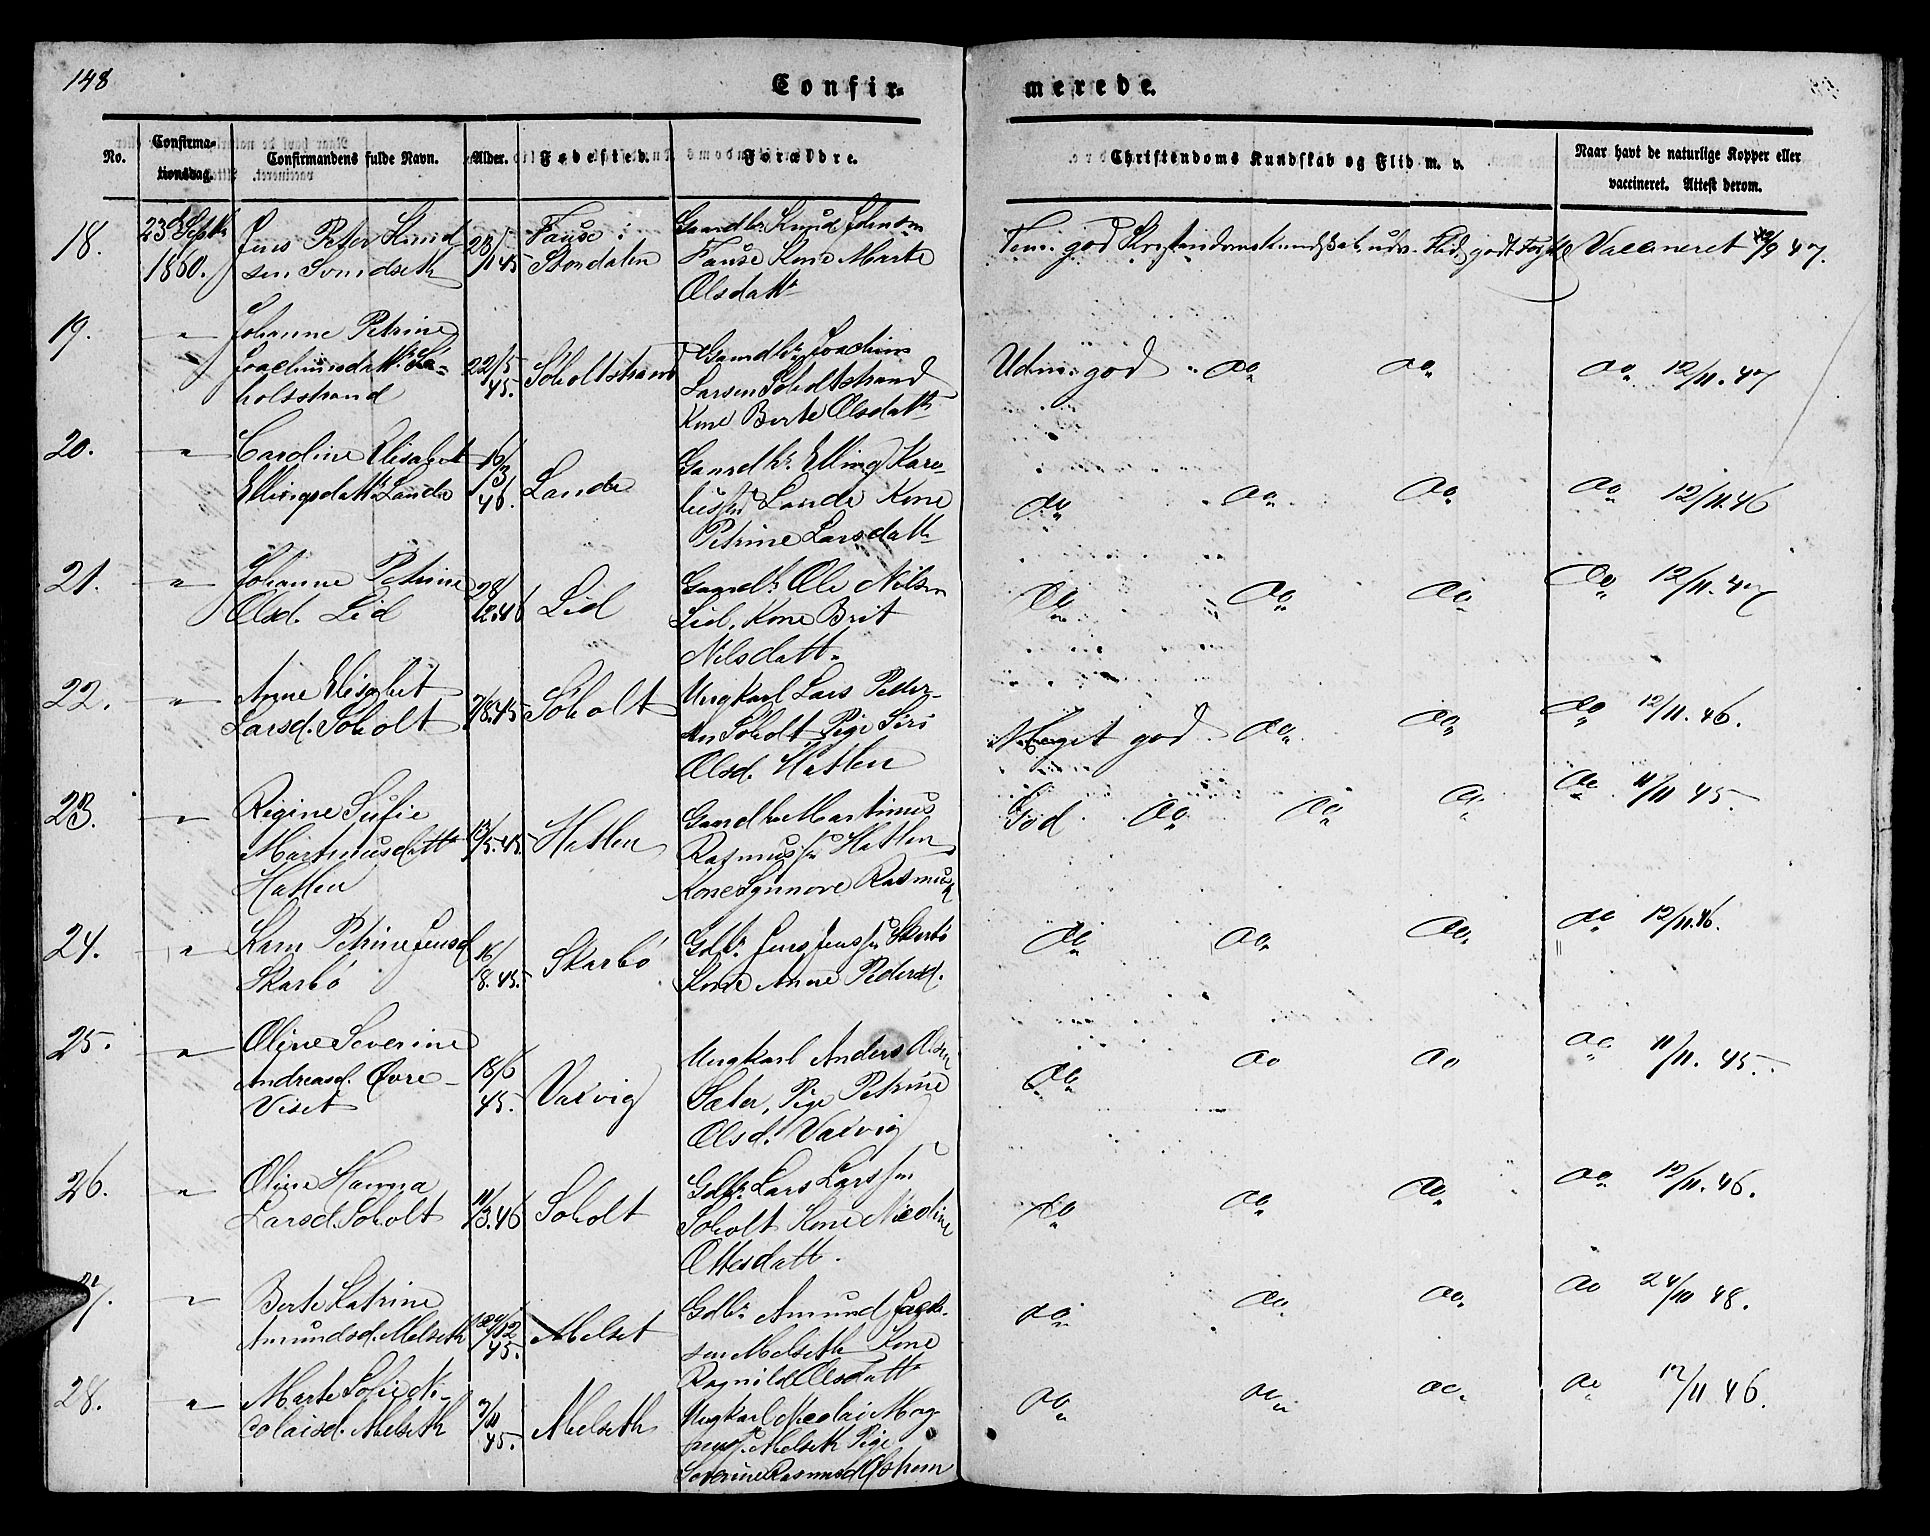 148
Confir-
merede.
No.
Confirma-
tionsdag.
Confirmandens fulde Navn.
Alder.
Fødested.
Forældre.
Christendoms Kundskab og Flid m. v.
Naar havt de naturlige Kopper eller
vaccineret. Attest derom.
18.
23 Septbr
1860.
Jens Peter Knud
sen
23/
11 45
Fause i
Stordalen
Gaardbr. Knud Johnsen
Fause Kone Marte
Olsdattr
Tem. god Kristendomskundskab udv. Flid
Vaccineret 47.
19.
"
Johanne Petrine
Joachimsdattr. Sø-
holtstrand
22/5
45.
Söholtstrand
Gaardbr. Joachim
Larsen Söholtstrand
Kone Berte Olsdattr
Udm. god " do do do 12/11. 47
20.
"
Caroline Elisabet
Ellingsdattr. Lande
16/
3
46.
Lande
Gaardbr. Elling Kare-
Lande Kone
Petrine Larsdattr
do do do do 12/11. 46
21.
"
Johanne Petrine
Olsd. Lid
28/
12.46
Lid
Gaardbr. Ole Nilsen
Lid, Kone Brit
Nilsdattr.
do do do do 12/11. 47
22.
"
Anne Elisabet
Larsd. Söholt
7/8.45
Söholt
Ungkarl Lars Peder-
sen Söholt Pige Siri
Olsd. Hatlen
Meget god do do do 12/11. 46.
23.
"
Regine Sufie
Martinusdattr
Hatlen
13/5.45.
Hatlen
Gaardbr Martinus
Rasmussn Hatlen
Kone Synnøve Rasmus
God do do do do 11/11 45.
24.
"
Karn Petrine Jensd
Skarbö
16/
8.45.
Skarbö
Gdbr. Jens Jenssn Skarbö
Kone Anne Pedersd.
do do do do 12/11.46.
25.
"
Oline Severine
Andreasd. Øvre-
Viset
18/6
45.
Vaxvig
Ungkarl Anders Olsen
Sæter, Pige Petrine
Olsd. Vaxvig
do do do do 11/11. 45.
26.
"
Oline Hanna
Larsd. Söholt
11/3.46
Söholt
Gdbr. Lars Larssn
Söholt Kone Nicoline
Ottesdattr.
do do do do 12/11. 46.
27.
"
Berte Katrine
Amundsd. Melseth
12
45.
Melset
Gdbr. Amund
sen Melseth Kone
Ragnilde Olsdattr
do do do do 24/10 48.
28.
"
Marte Sofie Ni-
colaisd. Melseth
3/11
45.
Melseth
Ungkarl Nicolai Mog
ens. Melseth Pige
Severine Rasmusd
do do do do 12/11 46.